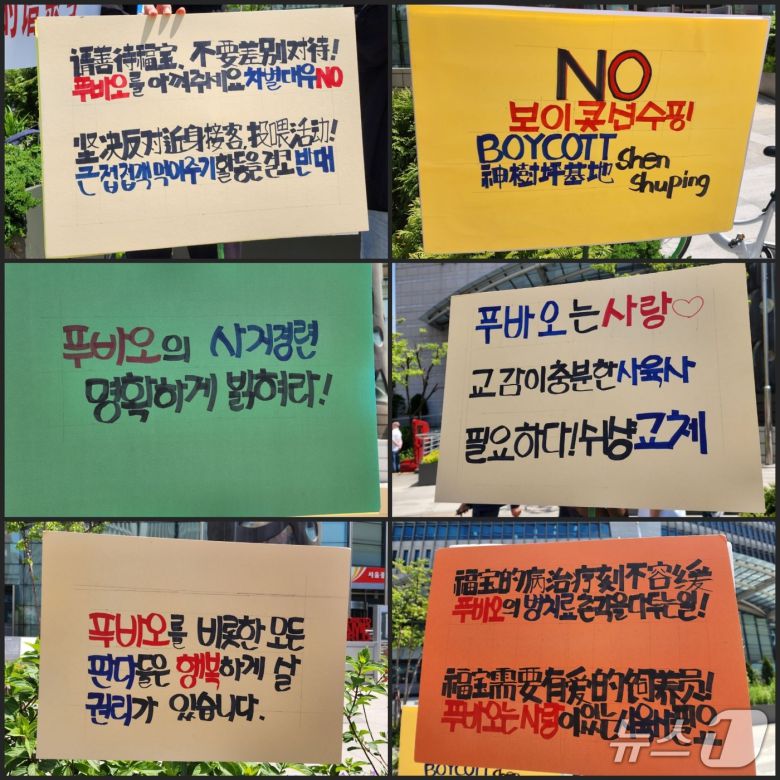 请善待福宝, 不要差别对待!
푸바오를 아껴주세요 차별대우 NO
坚决反对近身接客, 投喂活动!
근접접객 먹이주기 활동을 결코 반대
NO
보이콧 선수핑!
BOYCOTT Shen
神樹坪基地 shuping
푸바오의 사지경련
명확하게 밝혀라!
푸바오는 사랑♡
교감이 충분한 사육사
필요하다! 쉬샹 교체
푸바오를 비롯한 모든
판다들은 행복하게 살
권리가 있습니다.
福宝的病治疗刻不容缓
푸바오의 병치료 촌각을 다투는 일!
福宝需要有爱的饲养员!
푸바오는 사랑이 있는 사육사 필요
BOYCOTT shen
뉴스1